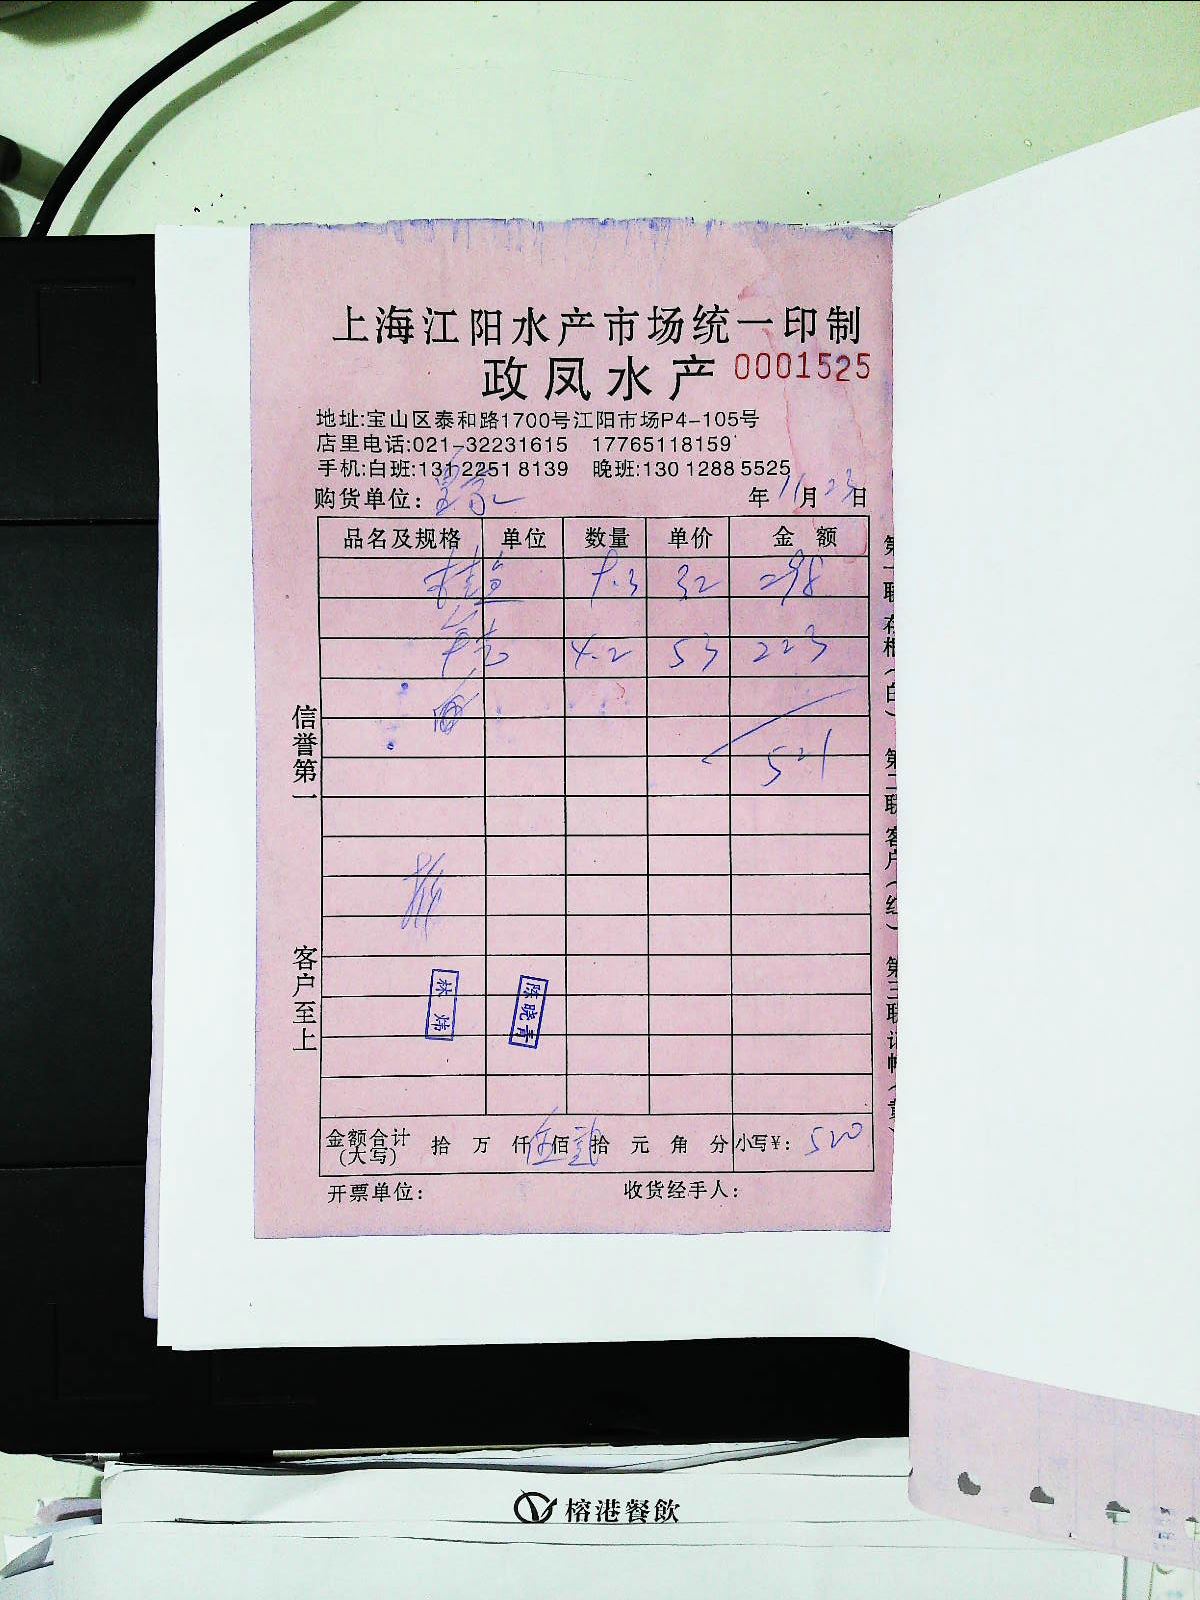 上海江阳水产市场统一印制
政凤水产 0001525
地址:宝山区泰和路1700号江阳市场P4-105号
店里电话:021-32231615 17765118159
手机:白班:131 2251 8139 晚班:130 1288 5525
购货单位: 年 11 月 23 日
品名及规格 单位 数量 单价 金 额
桂鱼 9.3 32 298
4.2 53 223
521
信誉第一
客户至上
林炜
陈晓青
金额合计(大写) 拾 万 仟 伍 佰 贰 拾 元 角 分 小写¥: 520
开票单位: 收货经手人:
第一联 存根(白) 第二联 客户(红) 第三联 记帐(黄)
榕港餐飲